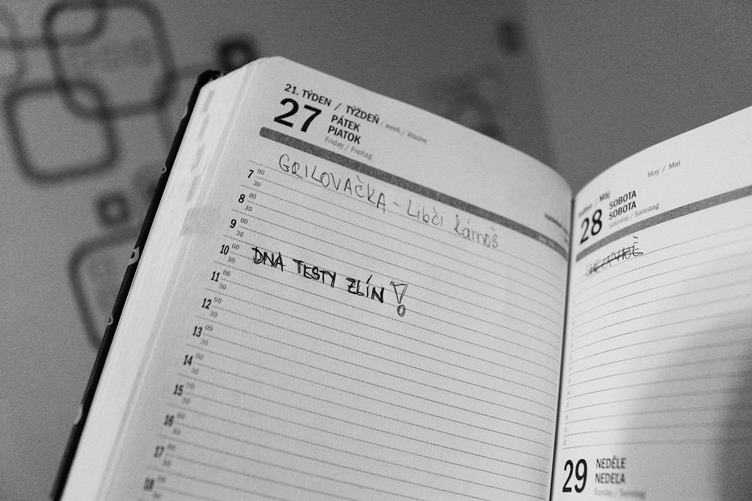 21. TÝDEN / TÝŽDEŇ / week / Woche
27 PÁTEK
PIATOK
Friday / Freitag
GRILOVAČKA - Libči
7 00
30
8 00
30
9 00
30
10 00
DNA TESTY ZLÍN!
30
11 00
30
12 00
30
13 00
30
14 00
30
15 00
30
16 00
30
17 00
30
18 00
/ Máj May / Mai
28 SOBOTA
SOBOTA
Saturday / Samstag
29 NEDĚLE
NEDEĽA
Sunday / Sonntag